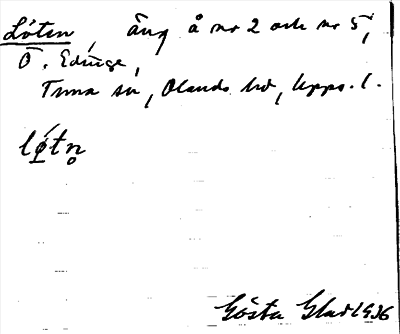 Lóten, äng å nr 2 och nr 5,
Ö. Edinge,
Tuna sn, Olands hd, Upps. l.
lǫ́tn̥
Gösta Glad 1936